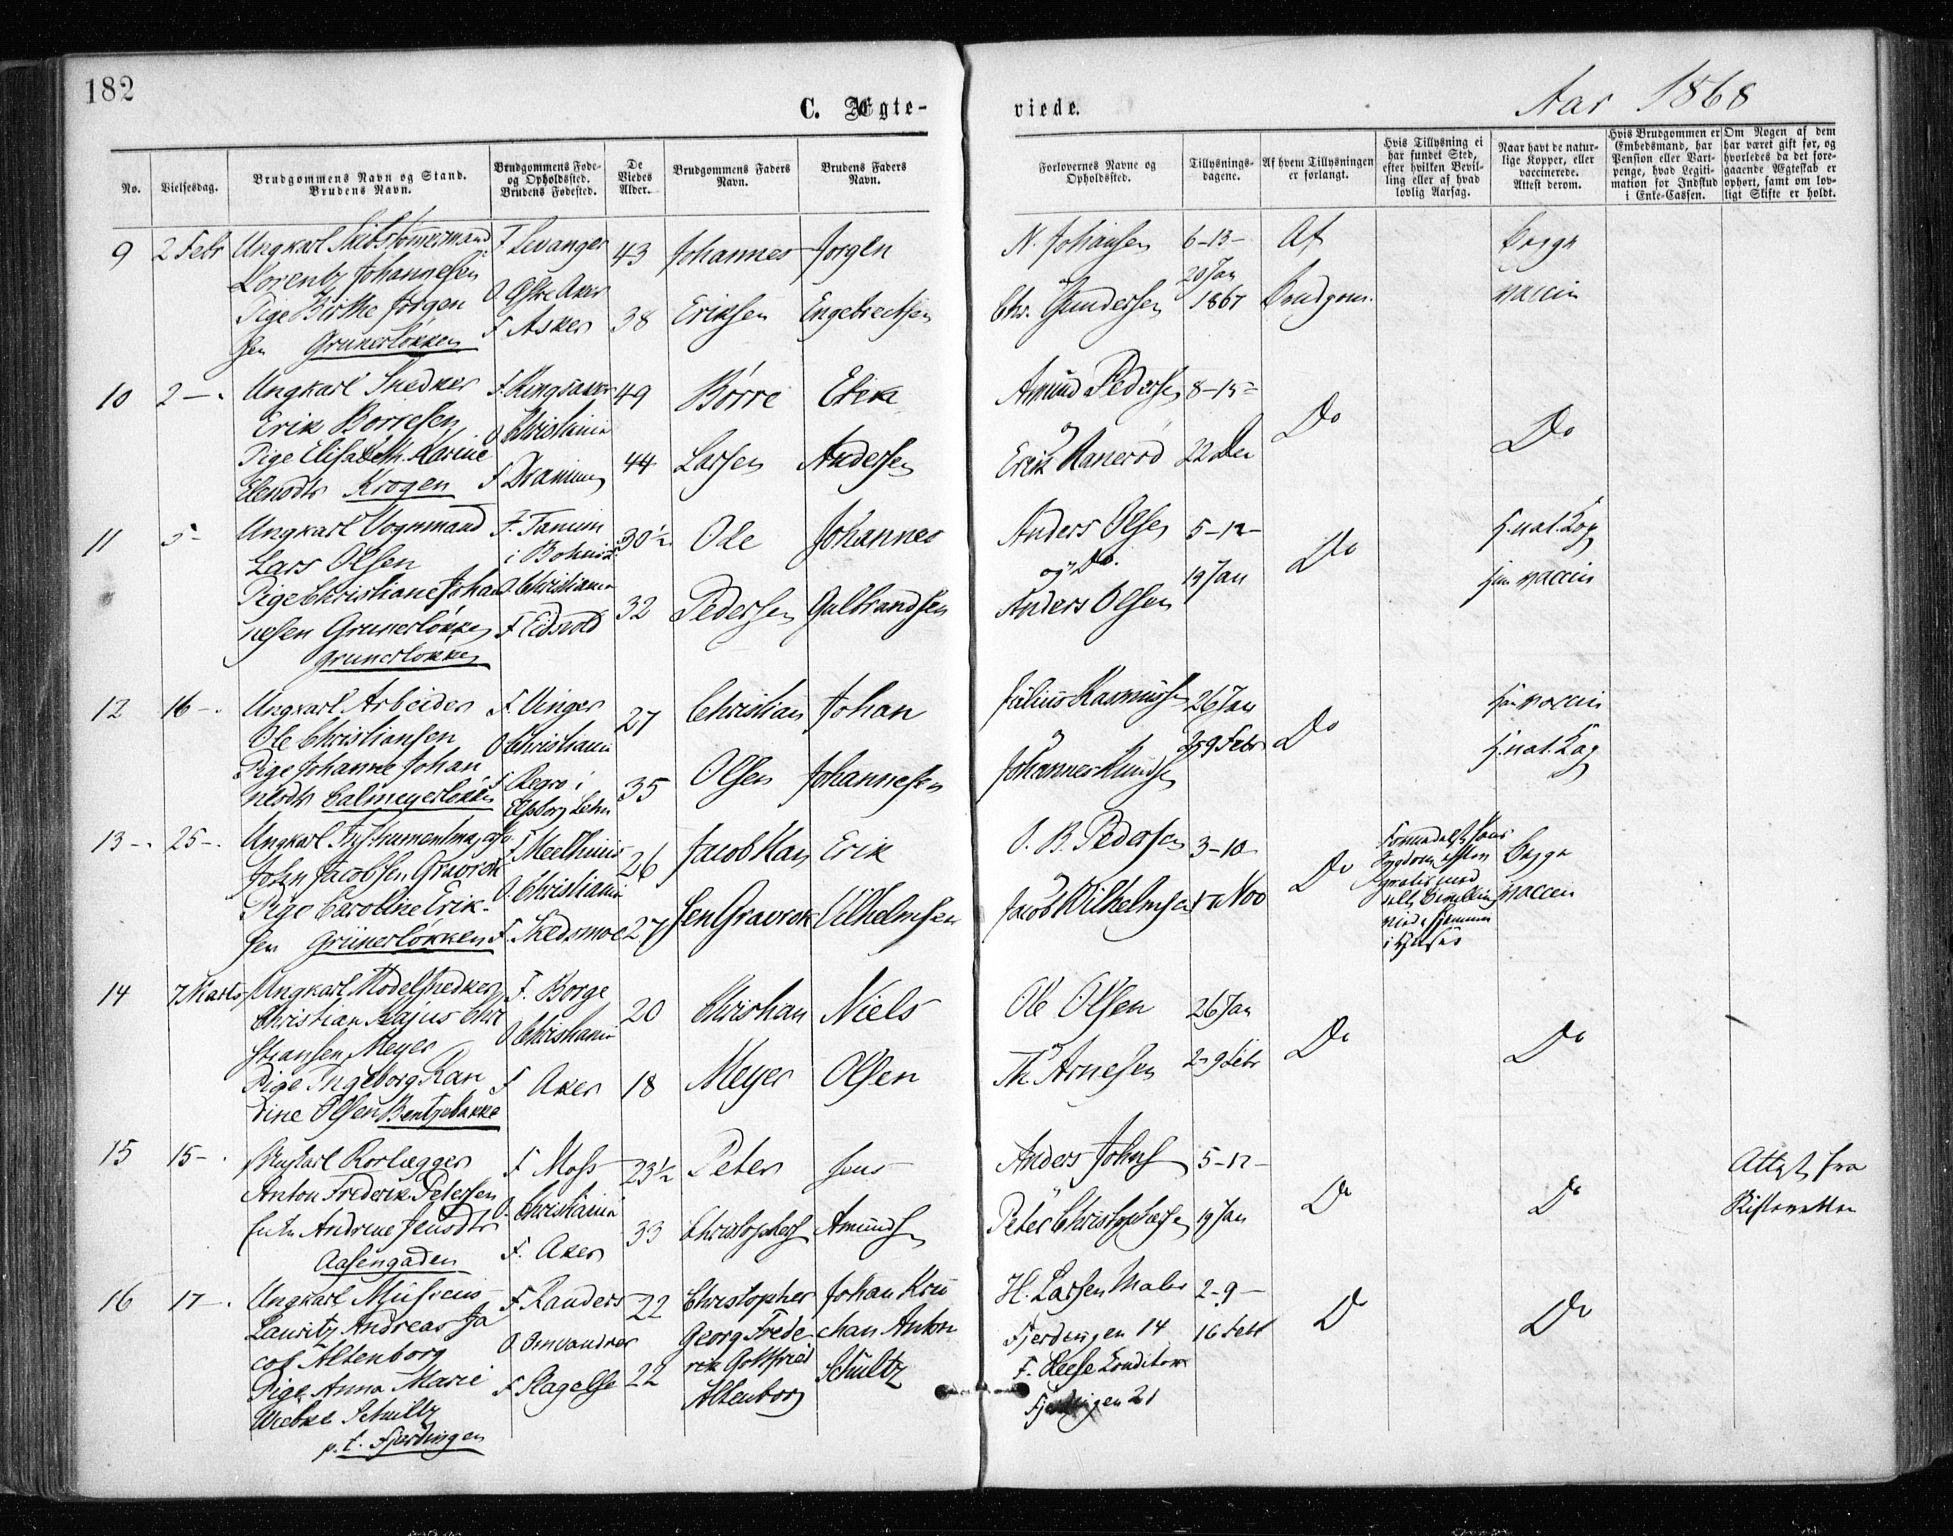 182
C. Ægte-
viede.
Aar 1868
No.
Vielsesdag.
Brudgommens Navn og Stand.
Brudens Navn.
Brudgommens Føde-
og Opholdssted.
Brudens Fødested.
De
Viedes
Alder.
Brudgommens Faders
Navn.
Brudens Faders
Navn.
Forlovernes Navne og
Opholdssted.
Tillysnings-
dagene.
Af hvem Tillysningen
er forlangt.
Hvis Tillysning ei
har fundet Sted,
efter hvilken Bevil-
ling eller af hvad
lovlig Aarsag.
Naar havt de natur-
lige Kopper, eller
vaccinerede.
Attest derom.
Hvis Brudgommen er
Embedsmand, har
Pension eller Vart-
penge, hvad Legiti-
mation for Indskud
i Enke-Cassen.
Om Nogen af dem
har været gift før, og
hvorledes da det fore-
gaaende Ægteskab er
ophørt, samt om lov-
ligt Skifte er holdt.
9
2 Febr
Ungkarl Skibstømermand
Lorentz Johannesen
Pige Birthe Jørgen
sen Grunerløkken
F Levanger
O Østre Aker
F Asker
43
38
Johannes
Eriksen
Jørgen
Engebrechtsen
N. Johansen
og
Chr. Gundersen
6-13-
20 Jan
1867
Af
Brudgom.
Begge
vaccin
10
2 -
Ungkarl Snedker
Erik Borresen
Pige Elisabeth Karine
Eriksdtr Krogen
F. Ringsaker
O Christiania
F Drammen
49
44
Børre
Larsen
Erik
Andersen
Amund Pedersen
og
Erik Hanerød
8-15-
22 Dec
Do
Do
11
5 -
Ungkarl Vognmand
Lars Olsen
Pige Christiane Johan
nesen Grunerløkken
Grunerløkken
F. Tanum
i Bohuslen
O Christiania
F Eidsvold
30½
32
Ole
Pedersen
Johannes
Gulbrandsen
Anders Olsen
og Do.
Anders Olsen
5-12-
19 Jan
Do
h. nat. Kop
han vaccin
12
16 -
Ungkarl Arbeider
Ole Christiansen
Pige Johanne Johan
nesdtr Calmeyerløkken
F. Vinger
O Christiania
F Regrø i
Elfsborg Lehn
27
35
Christian
Olsen
Johan
Johannesen
Julius Rasmussen
og
Johannes Knudsen
26 Jan
2-9 Febr
Do
han vaccin
h. nat. Kop
13
25 -
Ungkarl Instrumentmager
John Jacobsen Gravrok
Pige Caroline Erik-
sen Grünerløkken
F Meelhuus
O Christiania
F. Skedsmoe
26
27
Jacob Han
sen Gravrok
Erik
Vilhelmsen
O. B. Pedersen
Jacob Wilhelmsen
3-10-
17 Nov
Do
Begge
vaccin
14
7 Marts
Ungkarl Modelsnedker
Christian Kajus Chri
stiansen Meyer
Pige Ingeborg Ran
dine Olsen Bentsebakke
F. Borge
O Christiania
F Aker
20
18
Christian
Meyer
Niels
Olsen
Ole Olsen
og
Th Arnesen
26 Jan
2-9 Febr
Do
Do
15
15 -
Ungkarl Rorlægger
Anton Frederik Petersen
Enke Andrine Jensdtr
Aasengaden
F Moss
O Christiania
F. Aker
23½
33
Peter
Christophersen
Jens
Amundsen
Anders Johnsen
Peter Christophersen
5-12-
19 Jan
Do
Do
Attest fra
Skifteretten
16
17 -
Ungkarl Musicus
Lauritz Andreas Ja
cob Altenborg
Pige Anna Marie
Wiebke Schultz
p. t. Fjerdingen
F Randers
O Omvandrer
F Slagelse
22
22
Christopher
Georg Frede
rik Gottfried
Altenborg
Johan Kri
stian Anton
Schultz
H. Larsen Maler
Fjerdingen 14
F. Heese Konditor
Fjerdingen 21
2-9-
16 Febr
Do
Do